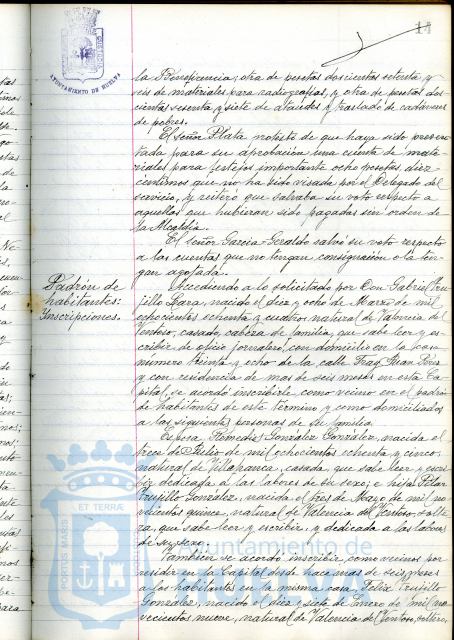 14
AYUNTAMIENTO DE HUELVA
la Beneficencia; otra de pesetas doscientas setenta y
seis de materiales para radiografias, y otra de pesetas dos-
cientas sesenta y siete de ataudes y traslado de cadáveres
de pobres.
El señor Plata protesta de que haya sido presen-
tada para su aprobación una cuenta de mate-
riales para festejos importante ocho pesetas, diez
centimos que no ha sido visada por el Delegado del
servicio, y reiteró que salvaba su voto respecto a
aquellas que hubieran sido pagadas sin orden de
la Alcaldía.
El señor Garcia-Geraldo salvó su voto respecto
a las cuentas que no tengan consignación o la ten-
gan agotada.
Padrón de
habitantes:
Inscripciones.
Accediendo a lo solicitado por Don Gabriel Tru-
jillo Lara, nacido el diez y ocho de Marzo de mil
ochocientos ochenta y cuatro, natural de Valencia del
Ventoso, casado, cabeza de familia, que sabe leer y es-
cribir, de oficio jornalero, con domicilio en la casa
número treinta y ocho de la calle Fray Juan Pérez
y con residencia de mas de seis meses en esta Ca-
pital, se acordó inscribirle como vecino en el padrón
de habitantes de este término y como domiciliados
a las siguientes personas de su familia.
Esposa, Remedios González González, nacida el
trece de Julio de mil ochocientos ochenta y cinco,
natural de Villafranca, casada, que sabe leer y escri-
bir, dedicada a las labores de su sexo; e hija Pilar
Trujillo González, nacida el tres de Mayo de mil no-
vecientos quince, natural de Valencia del Ventoso, solte-
ra, que sabe leer y escribir, y dedicada a las labores
de su sexo.
También se acordó inscribir como vecinos por
residir en la Capital desde hace mas de seis meses
a los habitantes en la misma casa, Felix Trujillo
González, nacido el diez y siete de Enero de mil no-
vecientos nueve, natural de Valencia del Ventoso, soltero,
PORTUS MARIS ET TERRAE
Ayuntamiento de